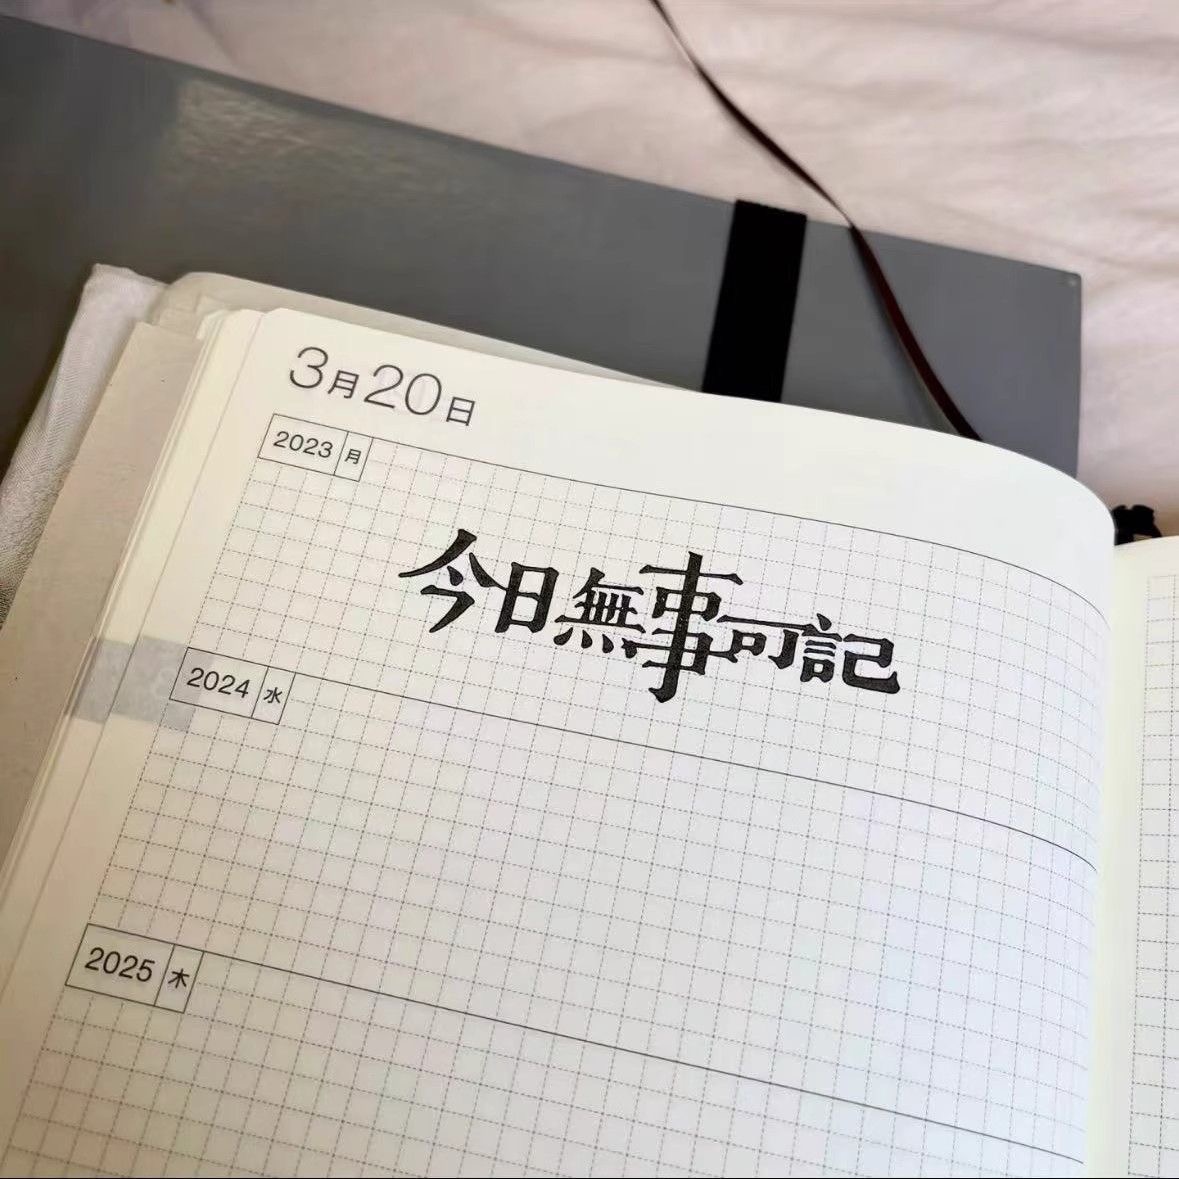 3月20日
2023 月
今日無事可記
2024 水
2025 木